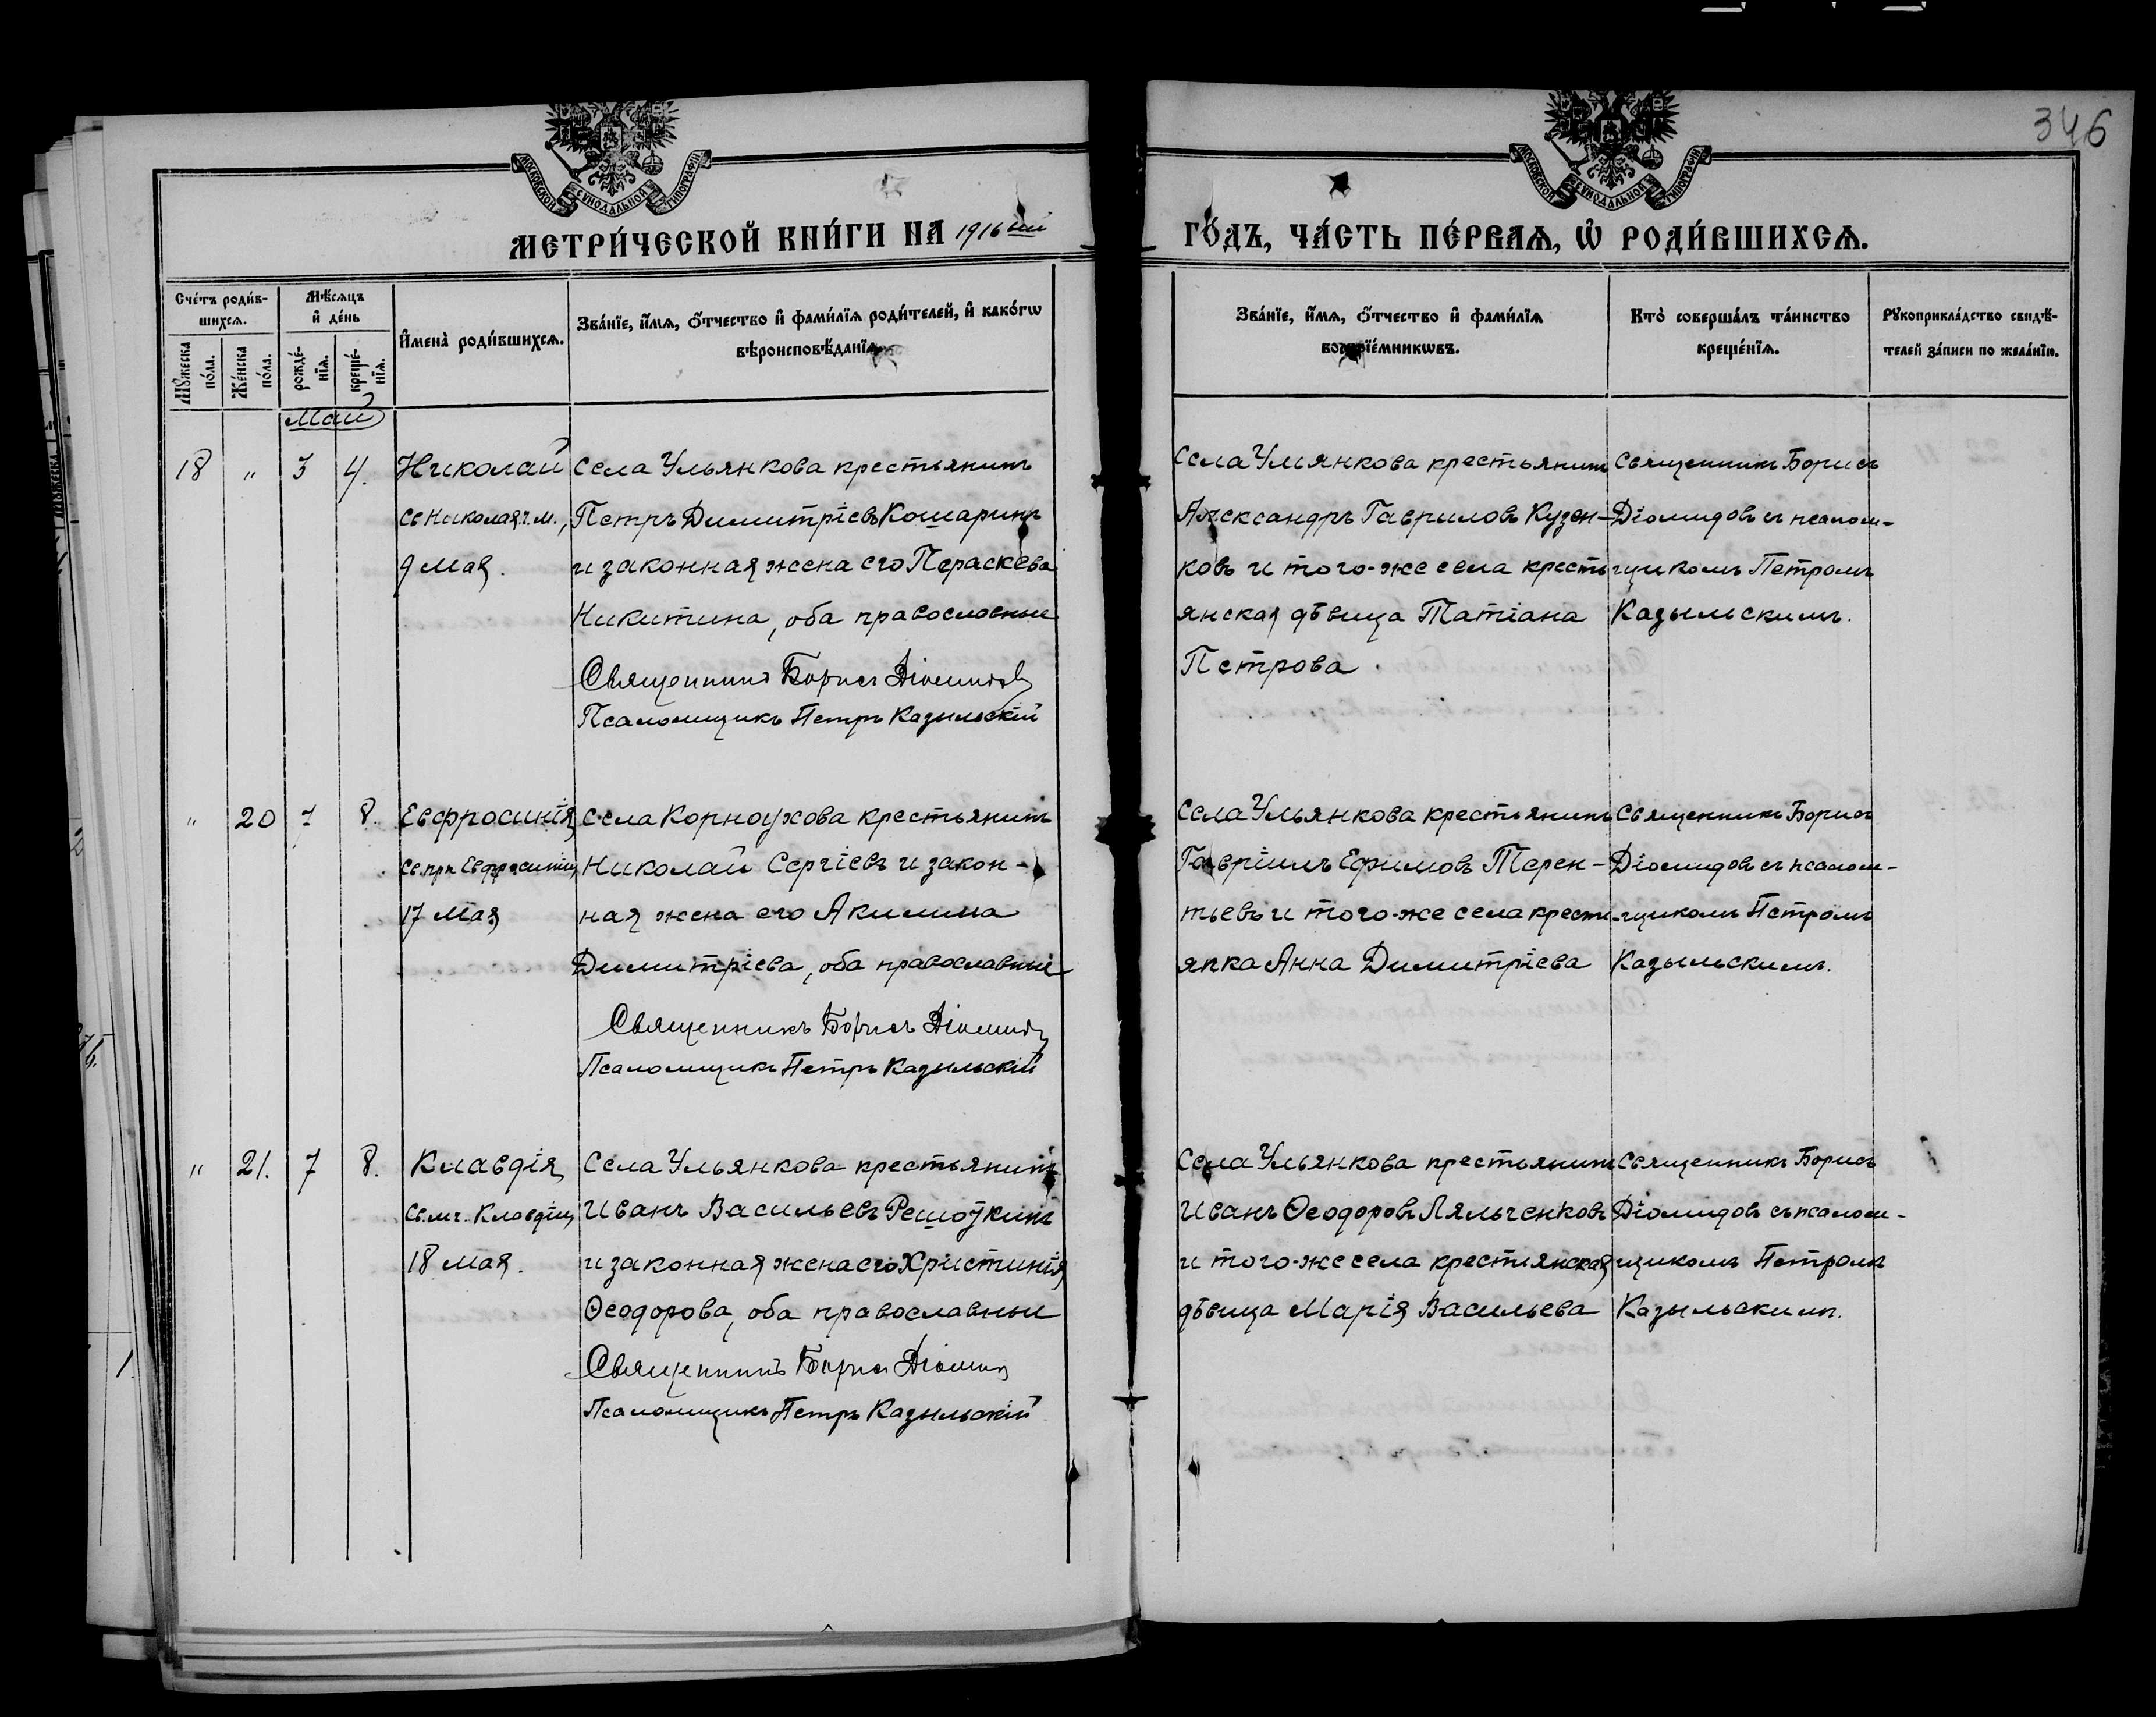 346
МОСКОВСКОЙ СѴНОДАЛЬНОЙ ТИПОГРАФІИ
МОСКОВСКОЙ СѴНОДАЛЬНОЙ ТИПОГРАФІИ
МЕТРИ́ЧЕСКОЙ КНИ́ГИ НА 1916 ый
ГО́ДЪ, ЧА́СТЬ ПЕ́РВАѦ, Ѡ҆ РОДИ́ВШИХСѦ.
Сче́тъ роди́в-
шихсѧ.
Мѣ́сѧцъ
и҆ де́нь
Мꙋ́жеска
по́ла.
Же́нска
по́ла.
рожде́-
нїѧ.
креще́-
нїѧ.
И҆мена̀ роди́вшихсѧ.
Зва́нїе, и҆́мѧ, ѻ҆́тчество и҆ фами́лїѧ роди́телей, и҆ како́гѡ
вѣроисповѣ́данїѧ.
Зва́нїе, и҆́мѧ, ѻ҆́тчество и҆ фами́лїѧ
воспрїе́мникѡвъ.
Кто̀ соверша́лъ та́инство
креще́нїѧ.
Рꙋкоприкла́дство свидѣ́-
телей за́писи по жела́нїю.
Май
18 " 3 4.
Николай
Св Николая ч. м.,
9 мая.
Села Ульянкова крестьянинъ
Петръ Димитріевъ Кошаринъ
и законная жена его Параскева
Никитина, оба православные
Священникъ Борисъ Діомидовъ
Псаломщикъ Петръ Казыльскій
Села Ульянкова крестьянинъ
Александръ Гавриловъ Кузен-
ковъ и того-же села кресть
янская дѣвица Татіана
Петрова.
Священникъ Борисъ
Діомидовъ съ псалом-
щикомъ Петромъ
Казыльскимъ.
" 20 7 8.
Евфросинія
Св. прп Евфросиніи
17 Мая
Села Корноухова крестьянинъ
Николай Сергіевъ и закон-
ная жена его Акилина
Димитріева, оба православные
Священникъ Борисъ Діомидъ
Псаломщикъ Петръ Казыльскій
Села Ульянкова крестьянинъ
Гавріилъ Ефимовъ Терен-
тьевъ и того-же села кресть-
янка Анна Димитріева
Священникъ Борисъ
Діомидовъ съ псалом-
щикомъ Петромъ
Казыльскимъ.
" 21. 7 8.
Клавдія
Св. мч. Клавдіи
18 мая.
Села Ульянкова крестьянинъ
Иванъ Васильевъ Решоткинъ
и законная жена его Христинія
Ѳеодорова, оба православные
Священникъ Борисъ Діомид
Псаломщикъ Петръ Казыльскій
Села Ульянкова крестьянинъ
Иванъ Ѳеодоровъ Ляльченковъ
и того-же села крестьянская
дѣвица Марія Васильева
Священникъ Борисъ
Діомидовъ съ псалом-
щикомъ Петромъ
Казыльскимъ.